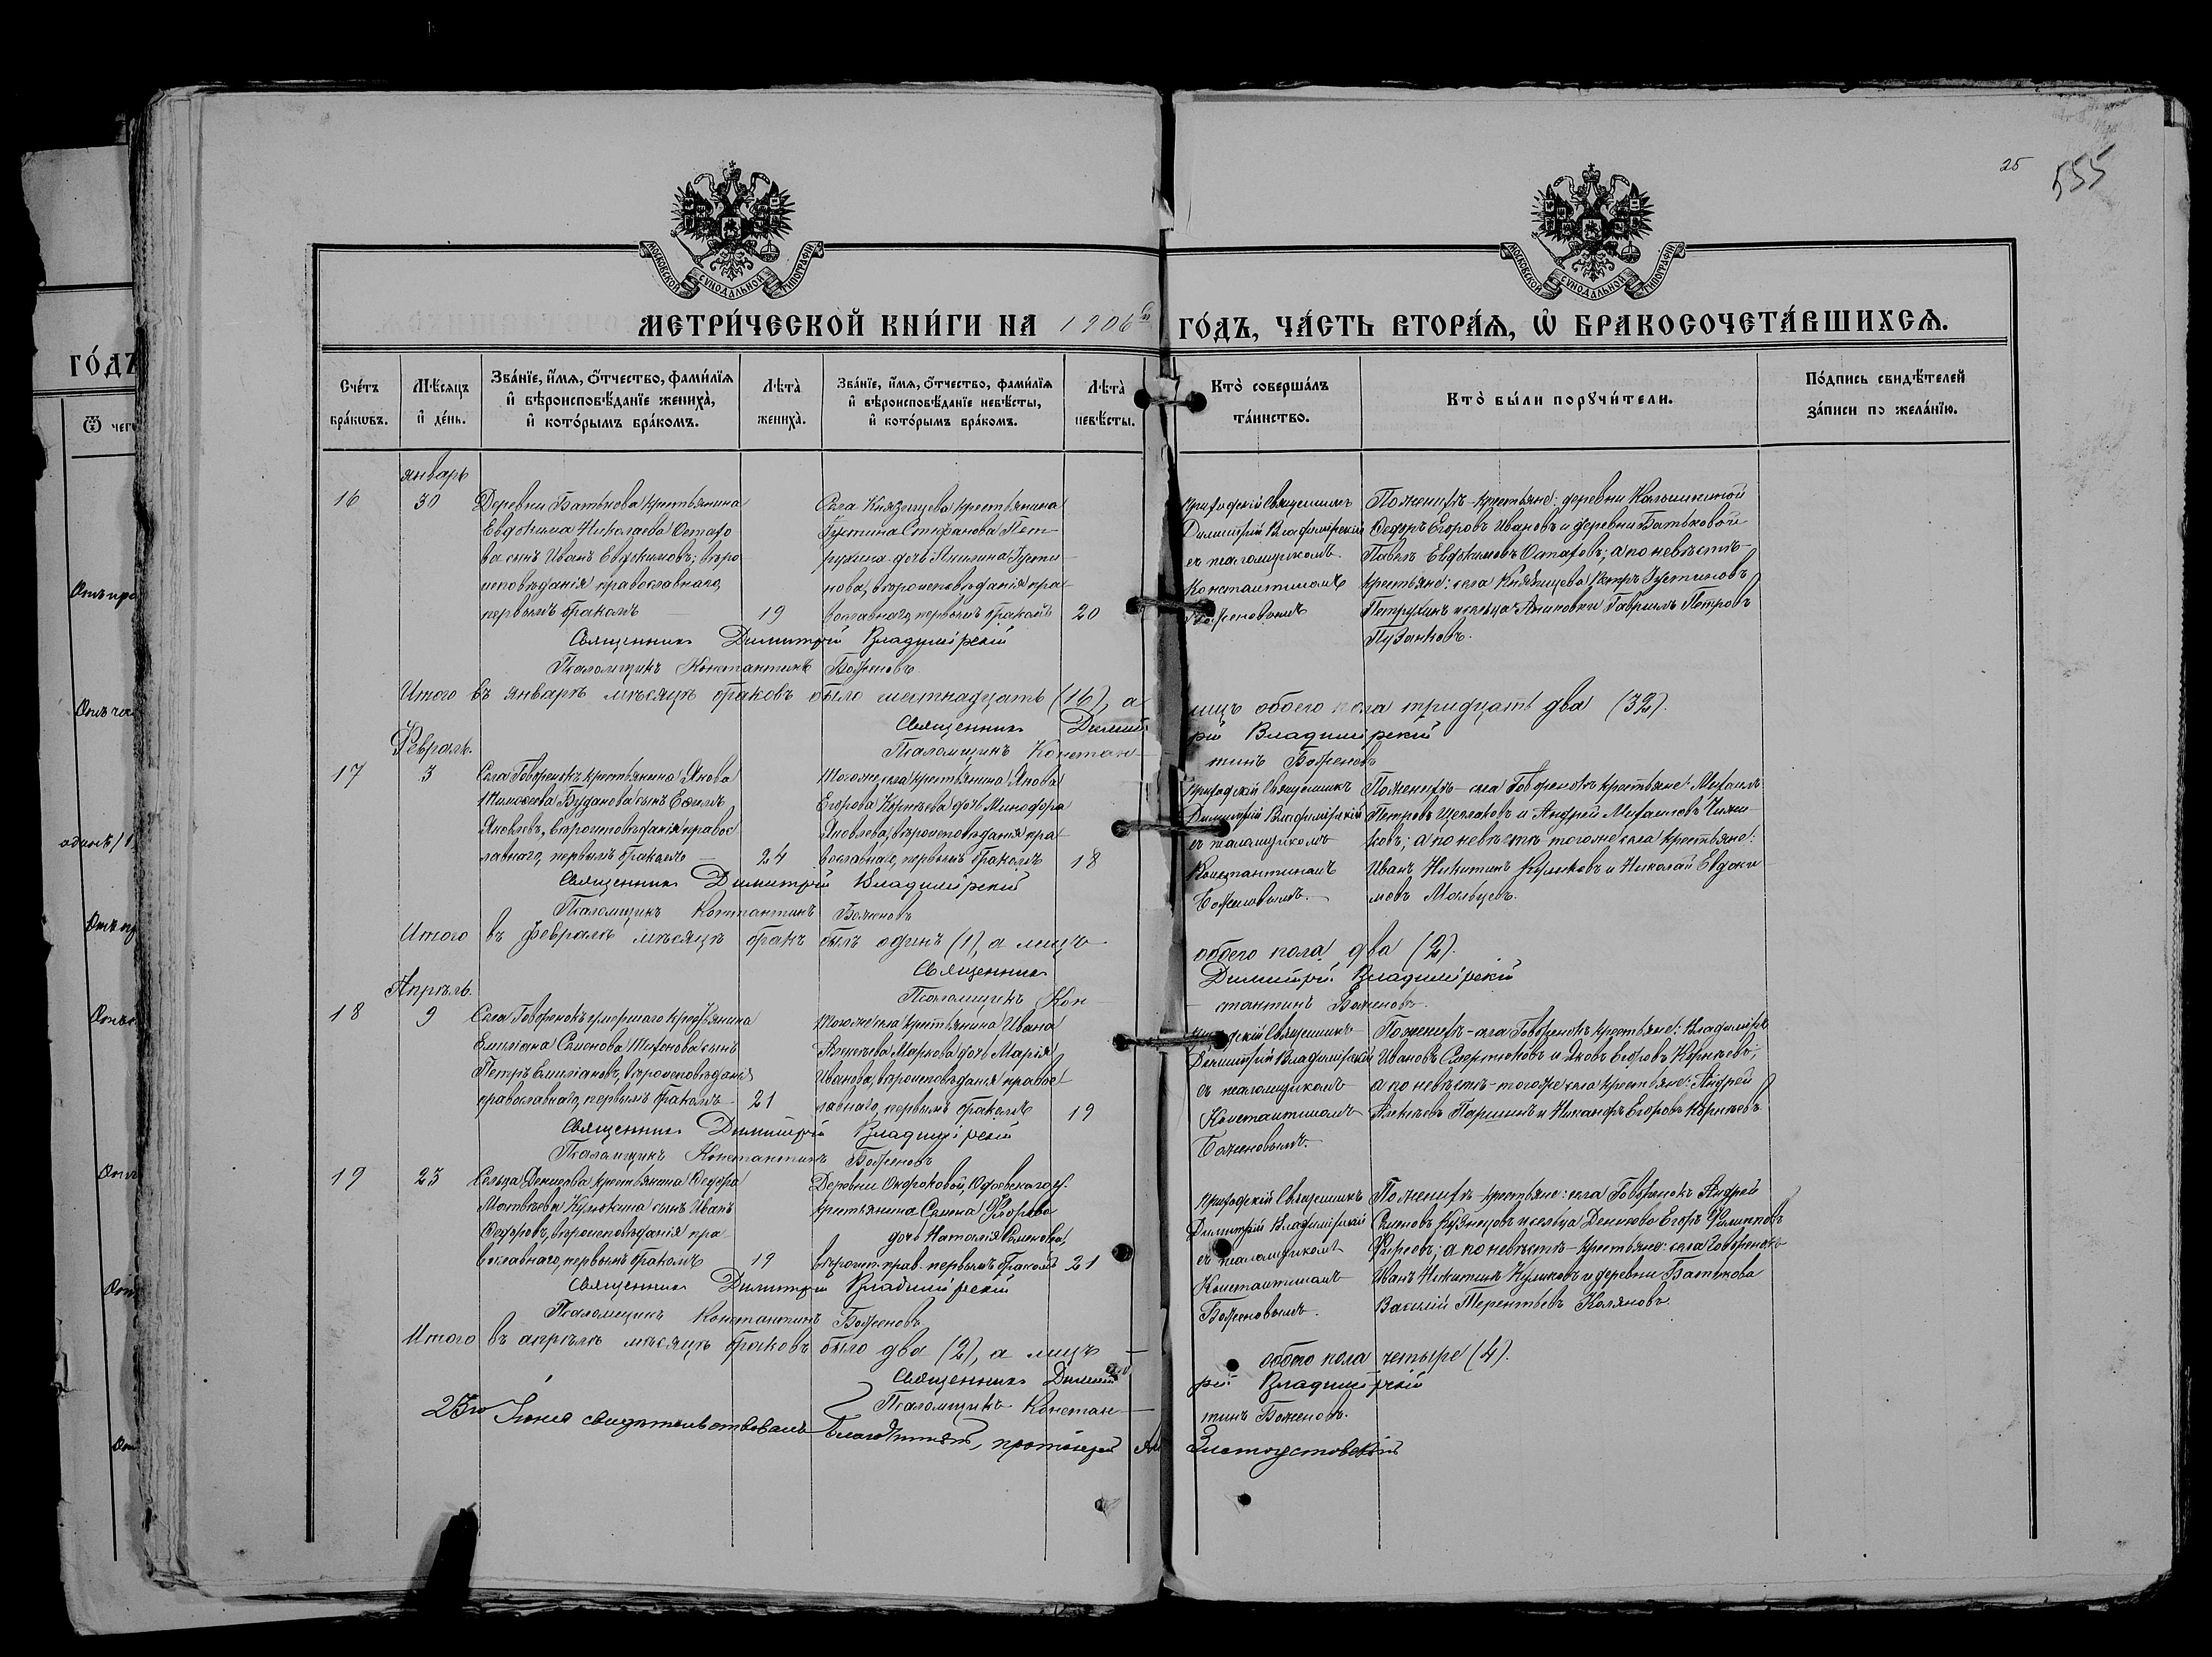 25
555
МОСКОВСКОЙ СѴНОДАЛЬНОЙ ТИПОГРАФІИ
МОСКОВСКОЙ СѴНОДАЛЬНОЙ ТИПОГРАФІИ
МЕТРИ́ЧЕСКОЙ КНИ́ГИ НА 1906й ГО́ДЪ, ЧА́СТЬ ВТОРА́Ѧ, Ѡ҆ БРАКОСОЧЕТА́ВШИХСѦ.
ГО́ДЪ
Сче́тъ бра́кѡвъ.
Мѣ́сяцъ и҆ де́нь.
Зва́нїе, и҆́мѧ, ѻ҆́тчество, фами́лїѧ и҆ вѣроисповѣ́данїе жениха̀, и҆ кото́рымъ бра́комъ.
Лѣта̀ жениха̀.
Зва́нїе, и҆́мѧ, ѻ҆́тчество, фами́лїѧ и҆ вѣроисповѣ́данїе невѣ́сты, и҆ кото́рымъ бра́комъ.
Лѣта̀ невѣ́сты.
Кто̀ соверша́лъ та́инство.
Кто̀ бы́ли порꙋчи́тели.
По́дпись свидѣ́телей за́писи по жела́нїю.
Январь
16
30
Деревни Батькова крестьянина
Евдокима Николаева Остахо
ва сынъ Иванъ Евдокимовъ; вѣро
исповѣданія православнаго,
первымъ бракомъ
19
Села Князищева крестьянина
Густина Стефанова Пет-
рухина дочь Акилина Густи-
нова, вѣроисповѣданія пра-
вославнаго, первымъ бракомъ
20
Приходскій Священникъ
Димитрій Владимірскій
съ псаломщикомъ
Константиномъ
Боженовымъ
По женихѣ - крестьяне: деревни
Ѳедоръ Егоровъ Ивановъ и деревни Батьковой
Павелъ Евдокимовъ Остаховъ; а по невѣстѣ -
крестьяне: села Князищева Петръ Густиновъ
Петрухинъ и сельца Гавріилъ Петровъ
Пузанковъ.
Священникъ Димитрій Владимірскій
Псаломщикъ Константинъ Боженовъ
Итого въ январѣ мѣсяцѣ браковъ было шестнадцать (16), а лицъ обоего пола тридцать два (32).
Священникъ Димитрій Владимірскій
Псаломщикъ Константинъ Боженовъ
Февраль.
17
3
Села Говоренокъ крестьянина Якова
Тимоѳеева Буданова сынъ Евѳимъ
Яковлевъ, вѣроисповѣданія правос
лавнаго, первымъ бракомъ
24
Того же села крестьянина Якова
Егорова Корнѣева дочь Минодора
Яковлева, вѣроисповѣданія пра-
вославнаго, первымъ бракомъ
18
Приходскій Священникъ
Димитрій Владимірскій
съ псаломщикомъ
Константиномъ
Боженовымъ.
По женихѣ - села Говоренокъ крестьяне: Михаилъ
Петровъ Щеглаковъ и Андрей Михаиловъ Чижи-
ковъ; а по невѣстѣ того же села крестьяне:
Иванъ Никитинъ Куликовъ и Николай Евдоки-
мовъ Мальцевъ.
Священникъ Димитрій Владимірскій
Псаломщикъ Константинъ Боженовъ
Итого въ февралѣ мѣсяцѣ бракъ былъ одинъ (1), а лицъ обоего пола два (2).
Священникъ Димитрій Владимірскій
Псаломщикъ Константинъ Боженовъ.
Апрѣль.
18
9
Села Говоренокъ умершаго крестьянина
Емиліана Семенова Тихонова сынъ
Петръ Емиліановъ, вѣроисповѣданія
православнаго, первымъ бракомъ
21
Того же села крестьянина Ивана
Алексѣева Маркова дочь Марія
Иванова, вѣроисповѣданія правос
лавнаго, первымъ бракомъ
19
Приходскій Священникъ
Димитрій Владимірскій
съ псаломщикомъ
Константиномъ
Боженовымъ.
По женихѣ - села Говоренокъ крестьяне: Владиміръ
Ивановъ Смертюковъ и Яковъ Егоровъ Корнѣевъ;
а по невѣстѣ - того же села крестьяне: Андрей
Алексѣевъ Паршинъ и Никаноръ Егоровъ Корнѣевъ
Священникъ Димитрій Владимірскій
Псаломщикъ Константинъ Боженовъ
19
23
Сельца Денисова крестьянина Ѳедора
Матвѣева Кулюкина сынъ Иванъ
Ѳедоровъ, вѣроисповѣданія пра-
вославнаго, первымъ бракомъ
19
Деревни Окороковой, Одоевскаго у.
крестьянина Семена Флорова
дочь Наталія Семенова,
вѣроисп. прав. первымъ бракомъ
21
Приходскій Священникъ
Димитрій Владимірскій
съ псаломщикомъ
Константиномъ
Боженовымъ.
По женихѣ - крестьяне: села Говоренокъ Андрей
Семеновъ Кузнецовъ и сельца Денисова Егоръ Филипповъ
Фирсовъ; а по невѣстѣ - крестьяне: села Говоренокъ
Иванъ Никитинъ Куликовъ и деревни Батькова
Василій Терентьевъ Каляновъ.
Священникъ Димитрій Владимірскій
Псаломщикъ Константинъ Боженовъ
Итого въ апрѣлѣ мѣсяцѣ браковъ было два (2), а лицъ обоего пола четыре (4).
Священникъ Димитрій Владимірскій
Псаломщикъ Константинъ Боженовъ.
25го Іюня свидѣтельствовалъ Благочинный, протоіерей Златоустовскій